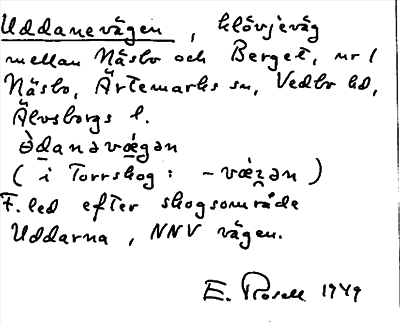 Uddanevägen, klövjeväg
mellan Näsbo och Berget, nr 1
Näsbo, Ärtemarks sn, Vedbo hd,
Älvsborgs l.
ə̀danəvǽgən
(i Torrskog: -vǽʓən)
F. led efter skogsområde
Uddarna, NNV vägen.
E. Rosell 1949